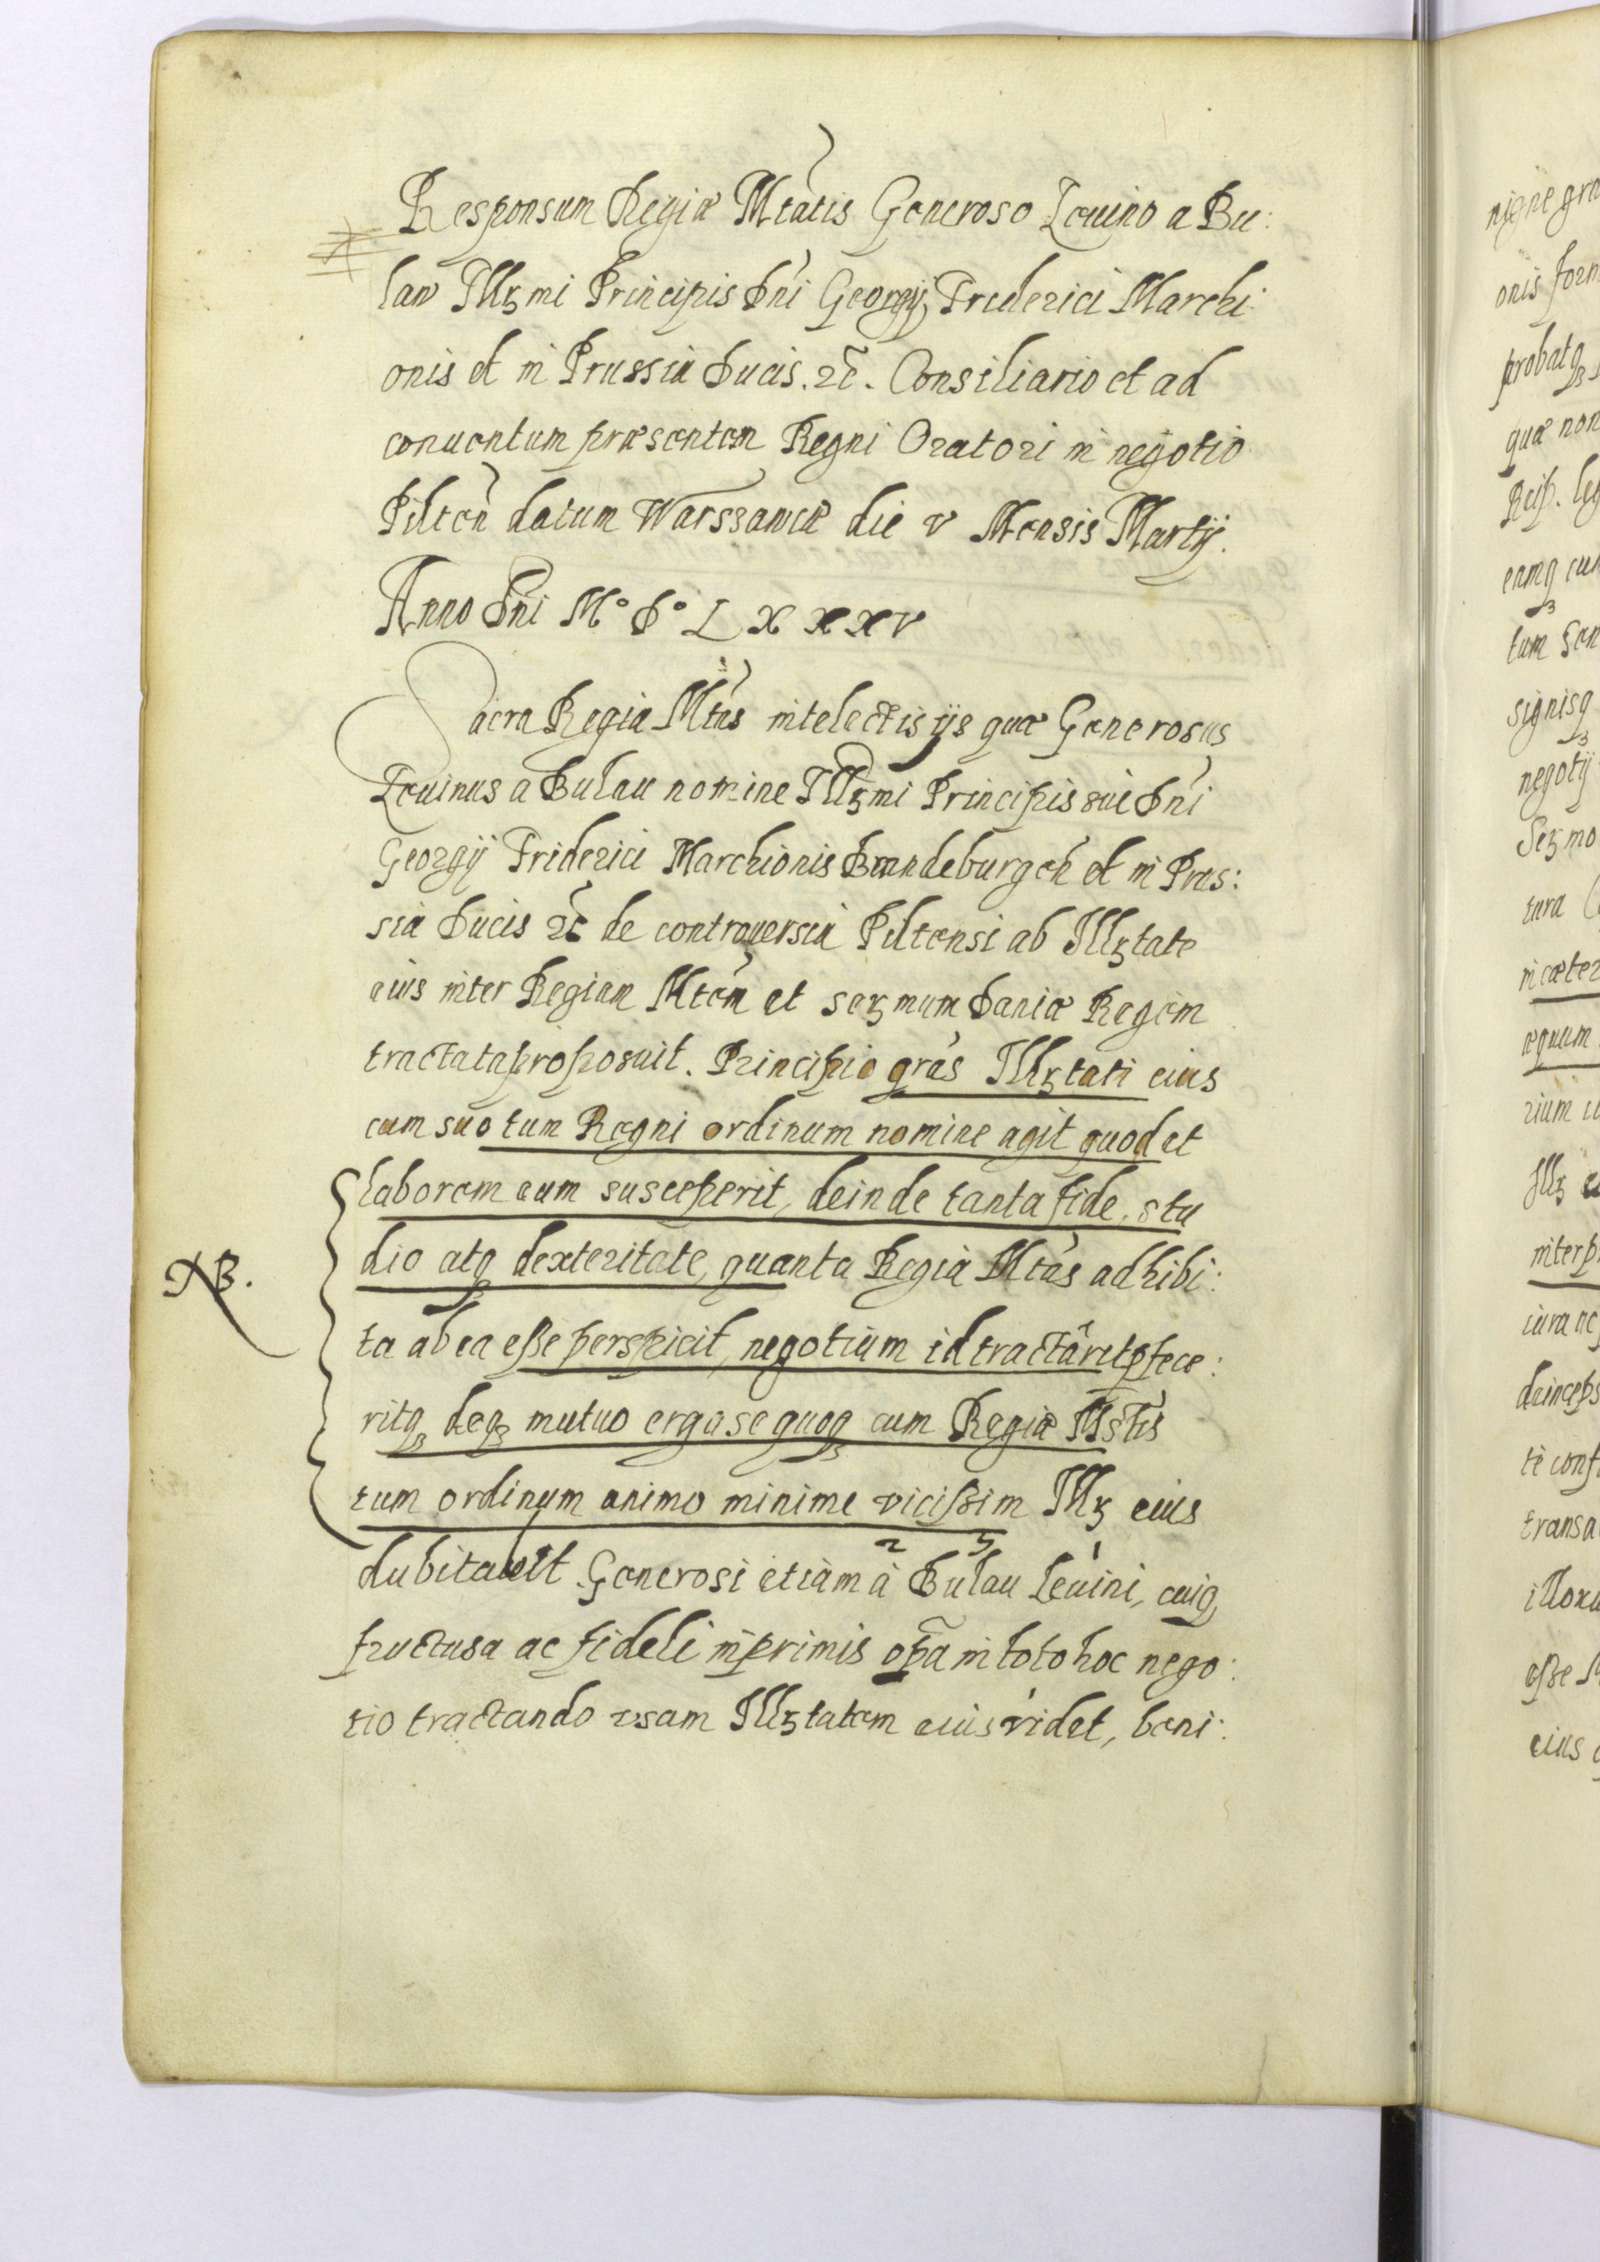 Responsum Regiæ Mtatis Generoso Leuino a Bu:
law Illrmi Principis Dni Georgij Friderici Marchi
onis et in Prussia Ducis. etc. Consiliario et ad
conuentum præsentem Regni Oratori in negotio
Pilten datum Warssawiæ die v Mensis Martij.
Anno Dni M° D° LXXXV
Sacra Regia Mtas intelectis ijs quæ Generosus
Leuinus a Bulau nomine Illrmi Principis sui Dni
Georgij Friderici Marchionis Brandeburgen et in Prus:
sia Ducis etc de controuersia Piltensi ab Illrtate
eius inter Regiam Mtem et sermum Daniæ Regem
tractata proposuit. Principio gras Illrtati eius
cum suo tum Regni ordinum nomine agit quod et
laborem eum susceperit, deinde tanta fide, stu
dio atq dexteritate, quanta Regia Mtas adhibi:
ta ab ea esse perspicit, negotium id tractarit
ritq deq mutuo erga se quoq cum Regiæ Mtis
tum ordinum animo minime vicissim Illr eius
dubitabit. Generosi etiam à Bulau Leuini, cuiq
fructusa ac fideli inprimis opa in toto hoc nego:
tio tractando vsam Illrtatem eius videt, beni:
NB.
nigne gra
onis form
probatq
quæ non
Reip. leg
eamq cum
tum
signisq
negotij
Sermo
tura
in cæter
æquum
rium
Illr
interp
iura
deinceps
te conf
transa
illoru
esse
eius